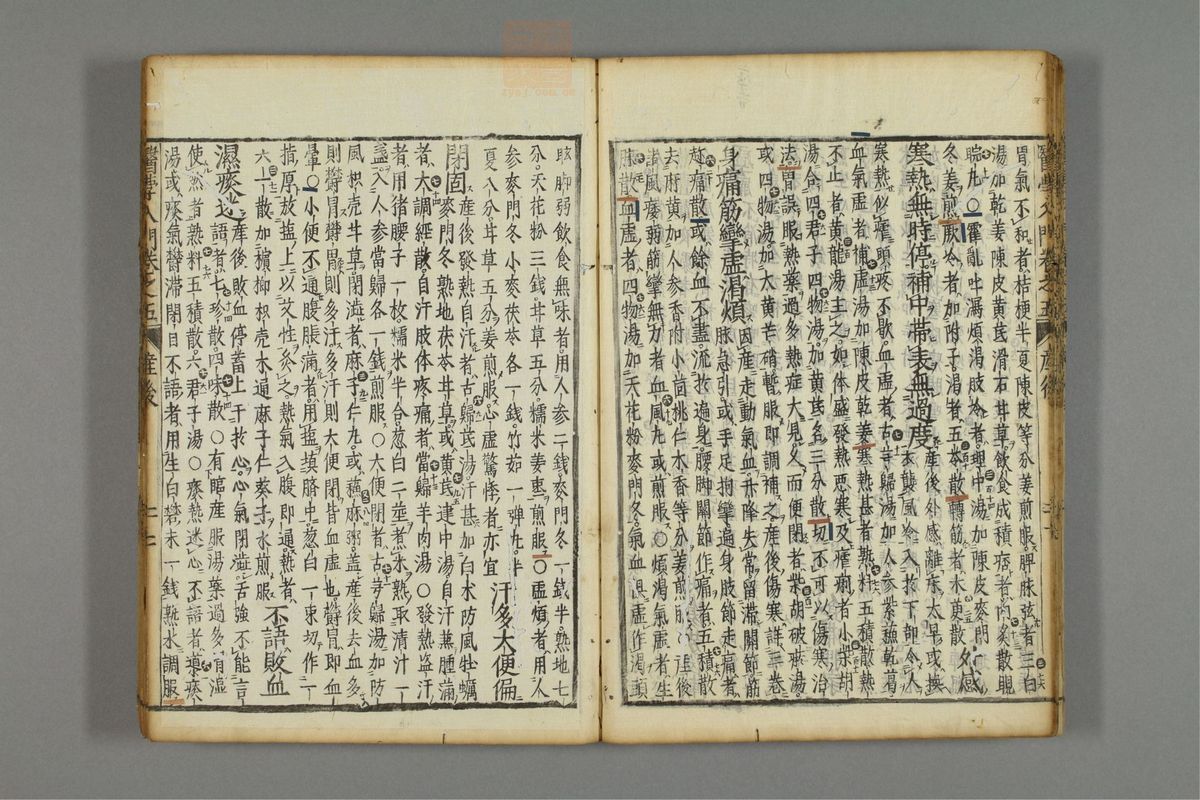 胃氣不和者桔梗半夏陳皮等分姜煎服脾脉弦者三白
湯加乾姜陳皮黄芪滑石甘草飲食成積痞者內灸散覩
睆丸○霍亂吐瀉煩渴肢冷者理中湯加陳皮麥門
冬姜煎厥冷者加附子渴者五苓散轉筋者木更散外感
寒熱無時停補中帶表無過度産後外感離床太早或換
衣襲風冷入於下部令人
寒熱似瘧頭疼不歇血虛者古芎歸湯加人參紫蘇乾葛
血氣虛者補虛湯加陳皮乾姜寒熱甚者熟料五積散熱
不止者黃龍湯主之如体盛發熱惡寒及瘧痢者小柴胡
湯合四君子四物湯加黄芪各三分散切不可以傷寒治
法胃誤服熱藥過多熱症大見久而便閉者柴胡破瘀湯
或四物湯加大黄芒硝暫服即調補之産後傷寒詳三卷
身痛筋攣虛渴煩因産走動氣血升降失常留滯關節筋
脉急引或手足拘攣遍身肢節走痛者
趂痛散或餘血不盡流於遍身腰脚關節作痛者五積散
去麻黄加人參香附小茴桃仁木香等分姜煎服産後
諸風痿弱筋攣無力者血風丸或煎服○煩渴氣虛者生
脉散血虛者四物湯加天花粉麥門冬氣血俱虛作渴頭
醫學入門卷之五 産後
眩脚弱飲食無味者用人參二錢麥門冬一錢半熟地七
分天花粉三錢甘草五分糯米姜棗煎服○虛煩者用人
參麥門冬小麥茯苓各一錢竹茹一彈丸半
夏八分甘草五分姜煎服心虛驚悸者亦宜汗多大便偏
閉固産後發熱自汗者古歸芪湯汗甚加白朮防風牡蠣
麥門冬熟地茯苓甘草或黄芪建中湯自汗兼腫滿
者大調經散自汗肢体疼痛者當歸羊肉湯○發熱盜汗
者用猪腰子一枚糯米半合葱白二莖煮米熟取清汁一
盞入人參當歸各一錢煎服○大便閉者古芎歸湯加防
風枳壳甘草閉澁者麻子仁丸或蘇麻粥盖産後去血多
則鬱冒鬱冒則多汗多汗則大便閉皆血虛也鬱冒即血
暈○小便不通腹脹滿者用塩填臍中葱白一束切作一
指厚放塩上以艾性灸之熱氣入腹即通熱者
六一散加檳榔枳壳木通麻子仁葵子水煎服不語敗血
濕痰迷産後敗血停蓄上干於心心氣閉澁舌強不能言
語者七珍散四味散○有臨産服湯藥過多胃濕
使然者熟料五積散六君子湯○痰熱迷心不語者導痰
湯或痰氣鬱滯閉目不語者用生白礬末一錢熟水調服
醫學入門卷之五 産後